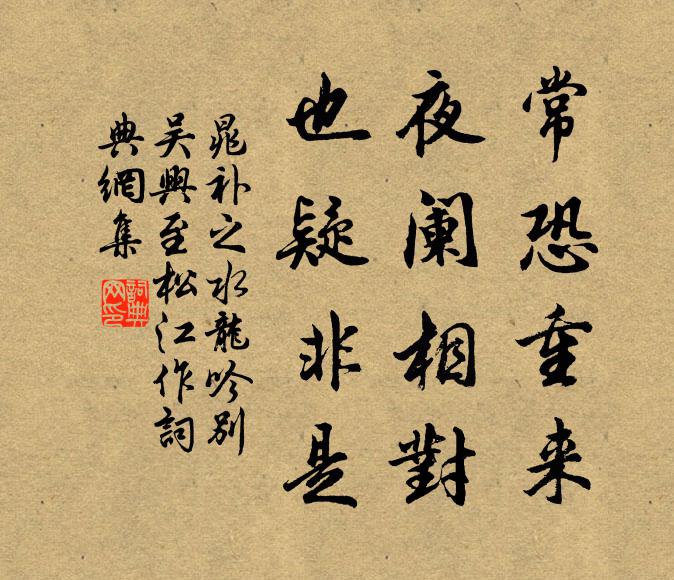 常恐重来
夜阑相對
也疑非是
晁补之水龍吟别
吴興至松江作詞
典網集
詞典
网印